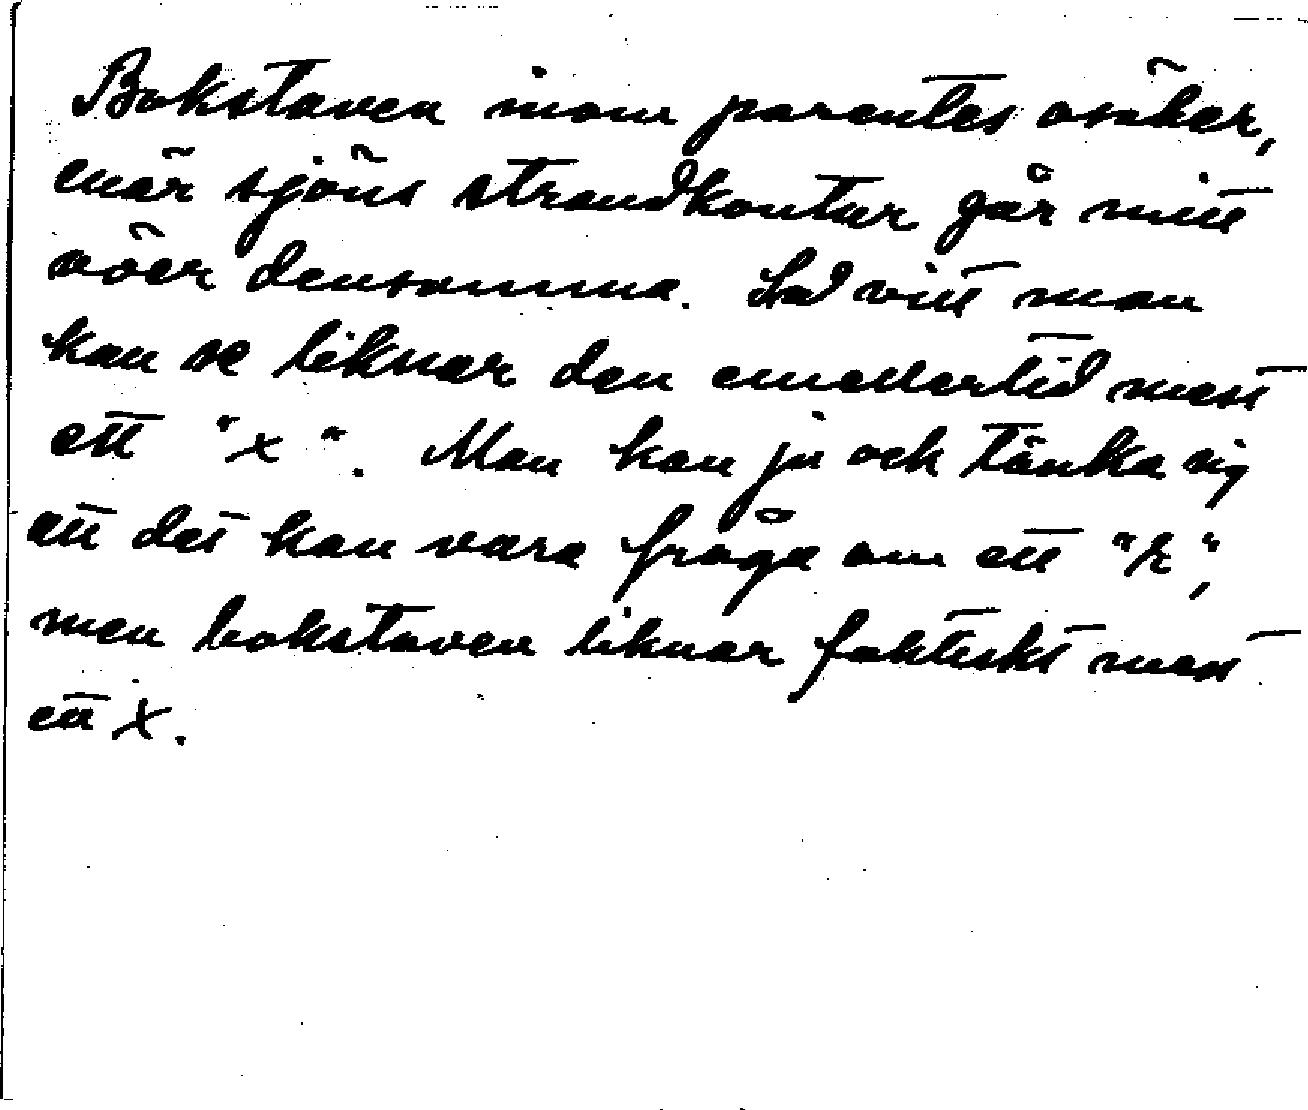 Bokstaven inom parentes osäker,
enär sjöns strandkontur går mitt
över densamma. Så vitt man
kan se liknar den emellertid mest
ett "x". Man kan ju och tänka sig
att det kan vara fråga om ett "k",
men bokstaven liknar faktiskt mest
ett x.